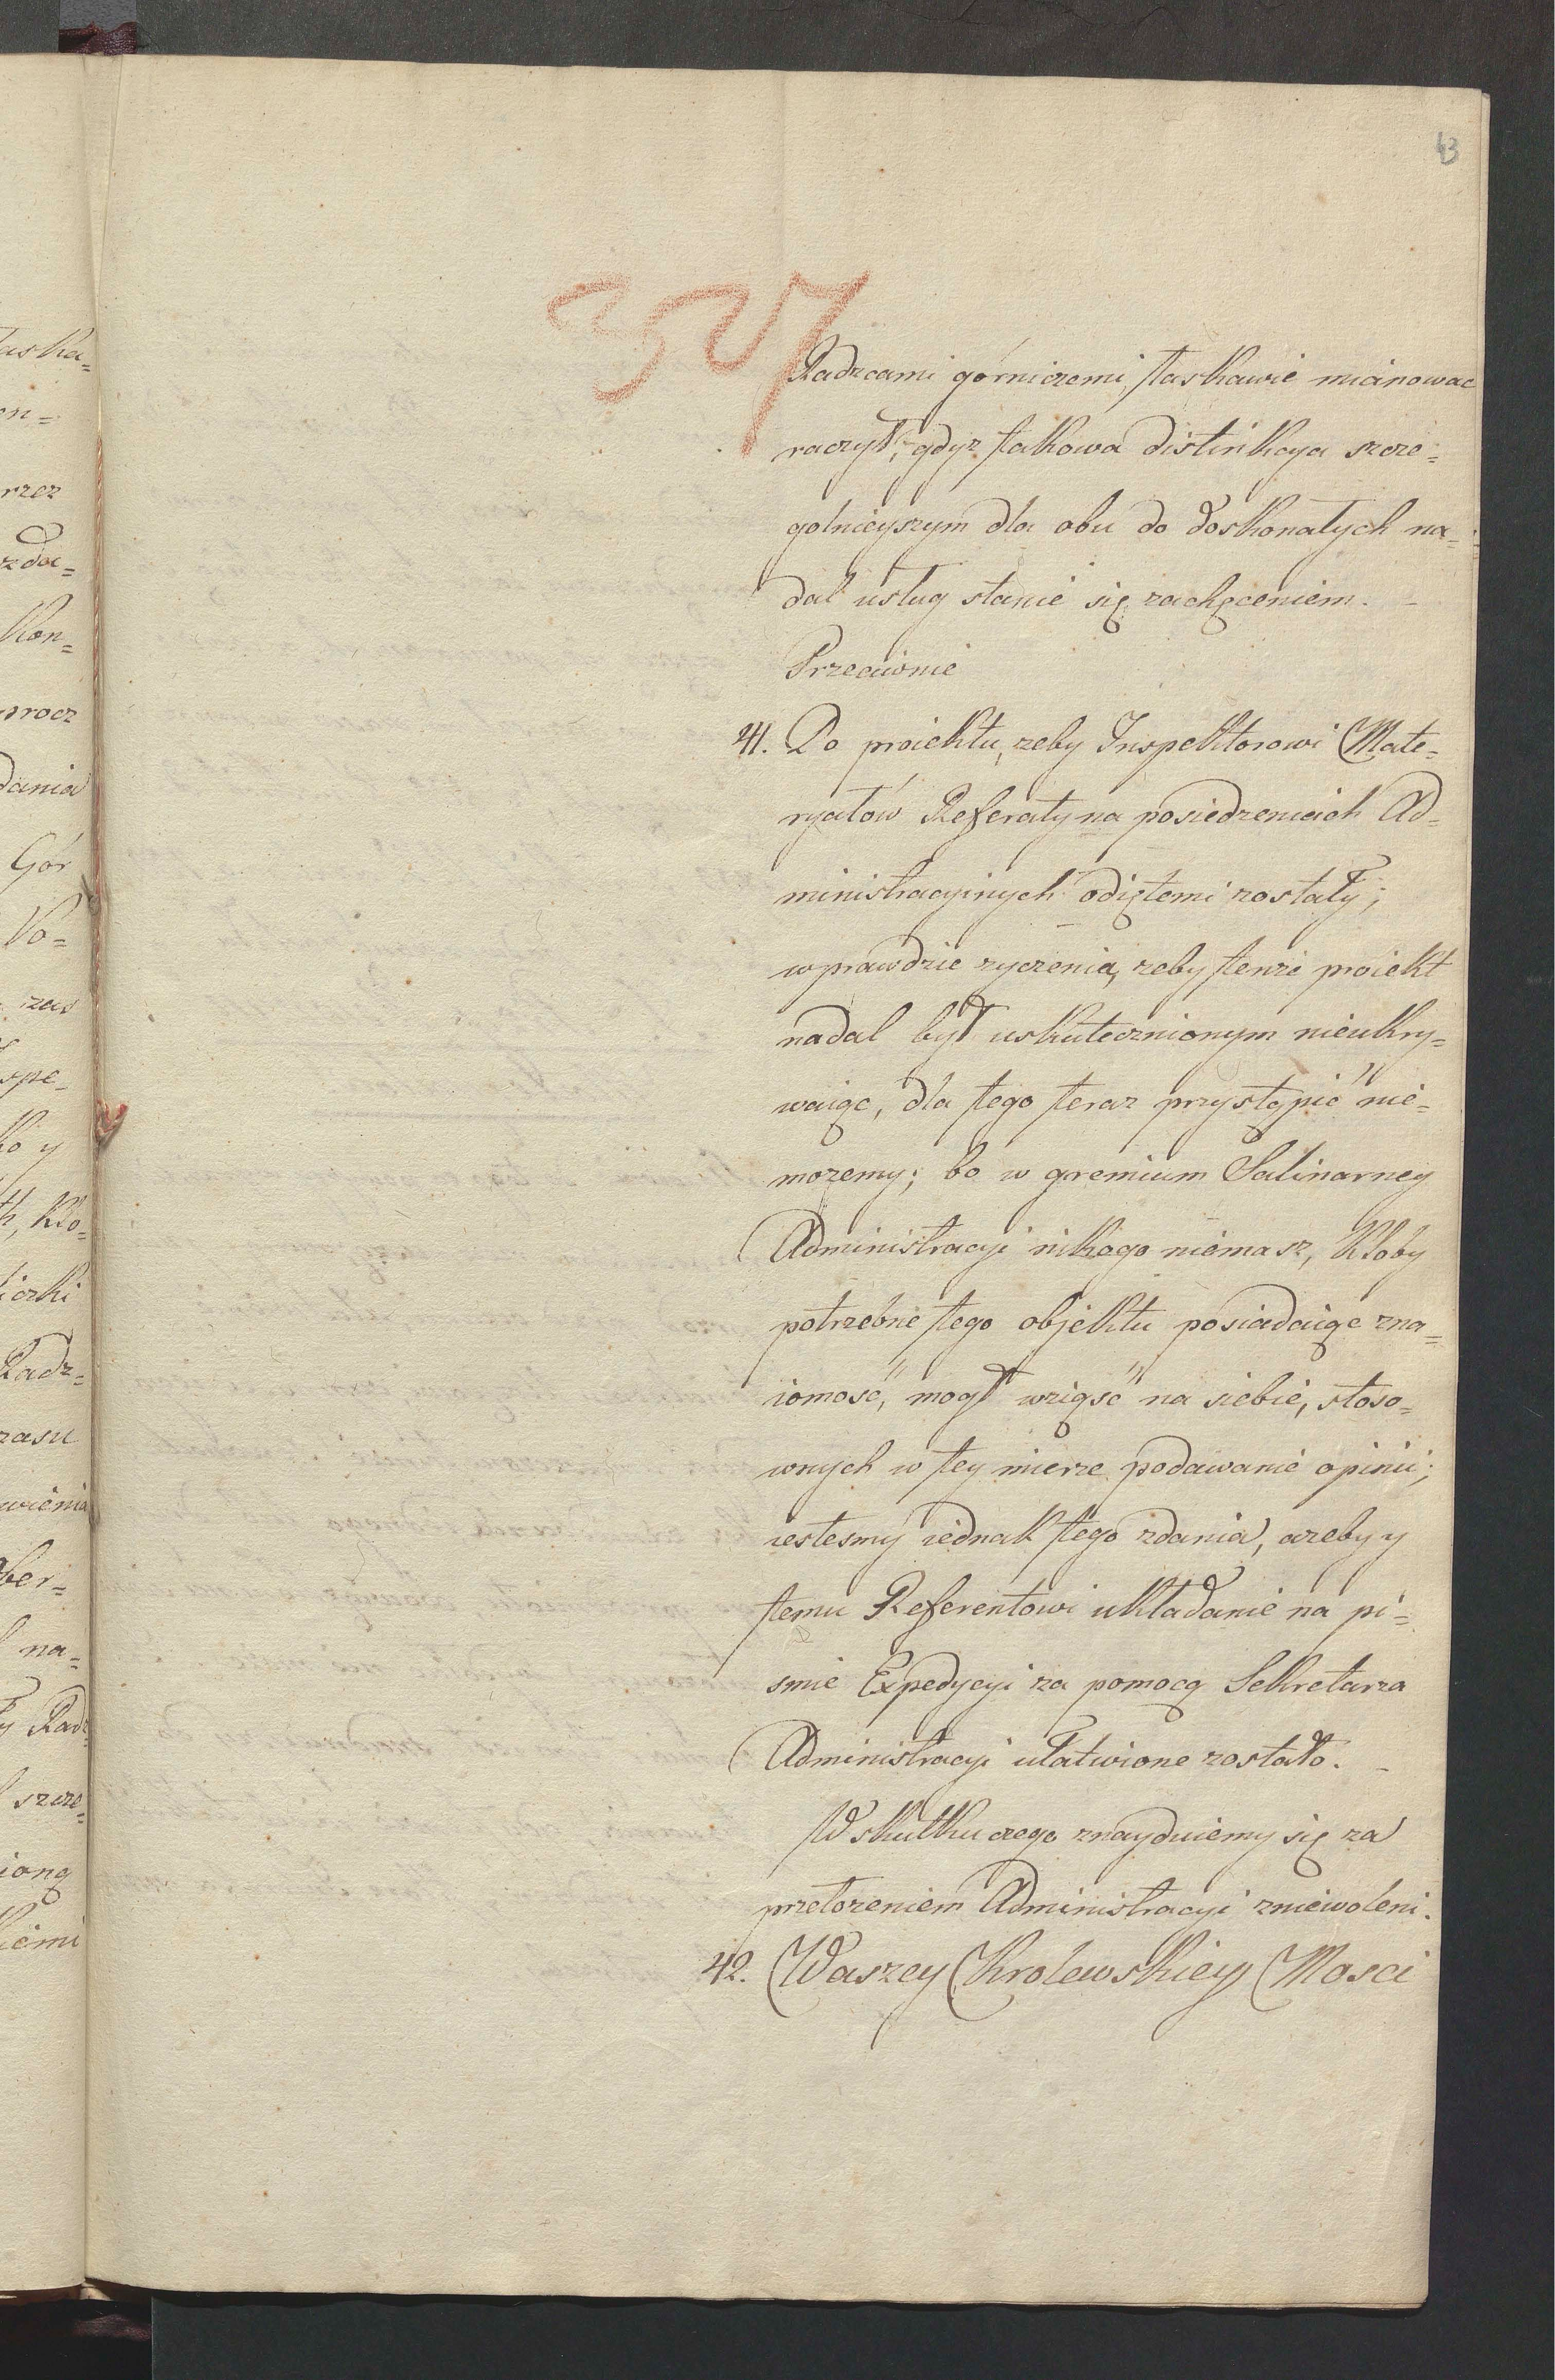 43
357
Radzcami górniczemi, łaskawie mianowac
raczył, gdyz takowa distinkcya szcze=
golnieyszym dla obu do doskonałych na=
dal usług stanie się zachęceniem. –
Przeciwnie
41. Do proiektu, zeby Inspektorowi Mate=
ryałów Referaty na posiedzeniach Ad=
ministracyinych odiętemi zostały;
wprawdzie zyczenia, zeby tenze proiekt
nadal był uskutecznionym nieukry=
waiąc, dla tego teraz przystąpić nie=
mozemy; bo w gremium Salinarney
Administracyi nikogo niemasz, któby
potrzebne tego objektu posiadaiąc zna=
iomość, mogł wziąść na siebie, stoso=
wnych w tey mierze podawanie opinii;
iestesmy iednak tego zdania, azeby y
temu Referentowi układanie na pi=
smie Expedycyi za pomocą Sekretarza
Administracyi ułatwione zostało. –
W skutku czego znayduiemy się za
przełozeniem Administracyi zniewoleni.
42. Waszey Krolewskiey Mosci
aska=
on=
rzez
zda=
kon=
procz
dania
Gór
Po=
zas
spe=
ko y
th, kto=
iczki
Radz=
zasu
wienia
ber=
na=
y Radz
szcze=
ioną
kiemi